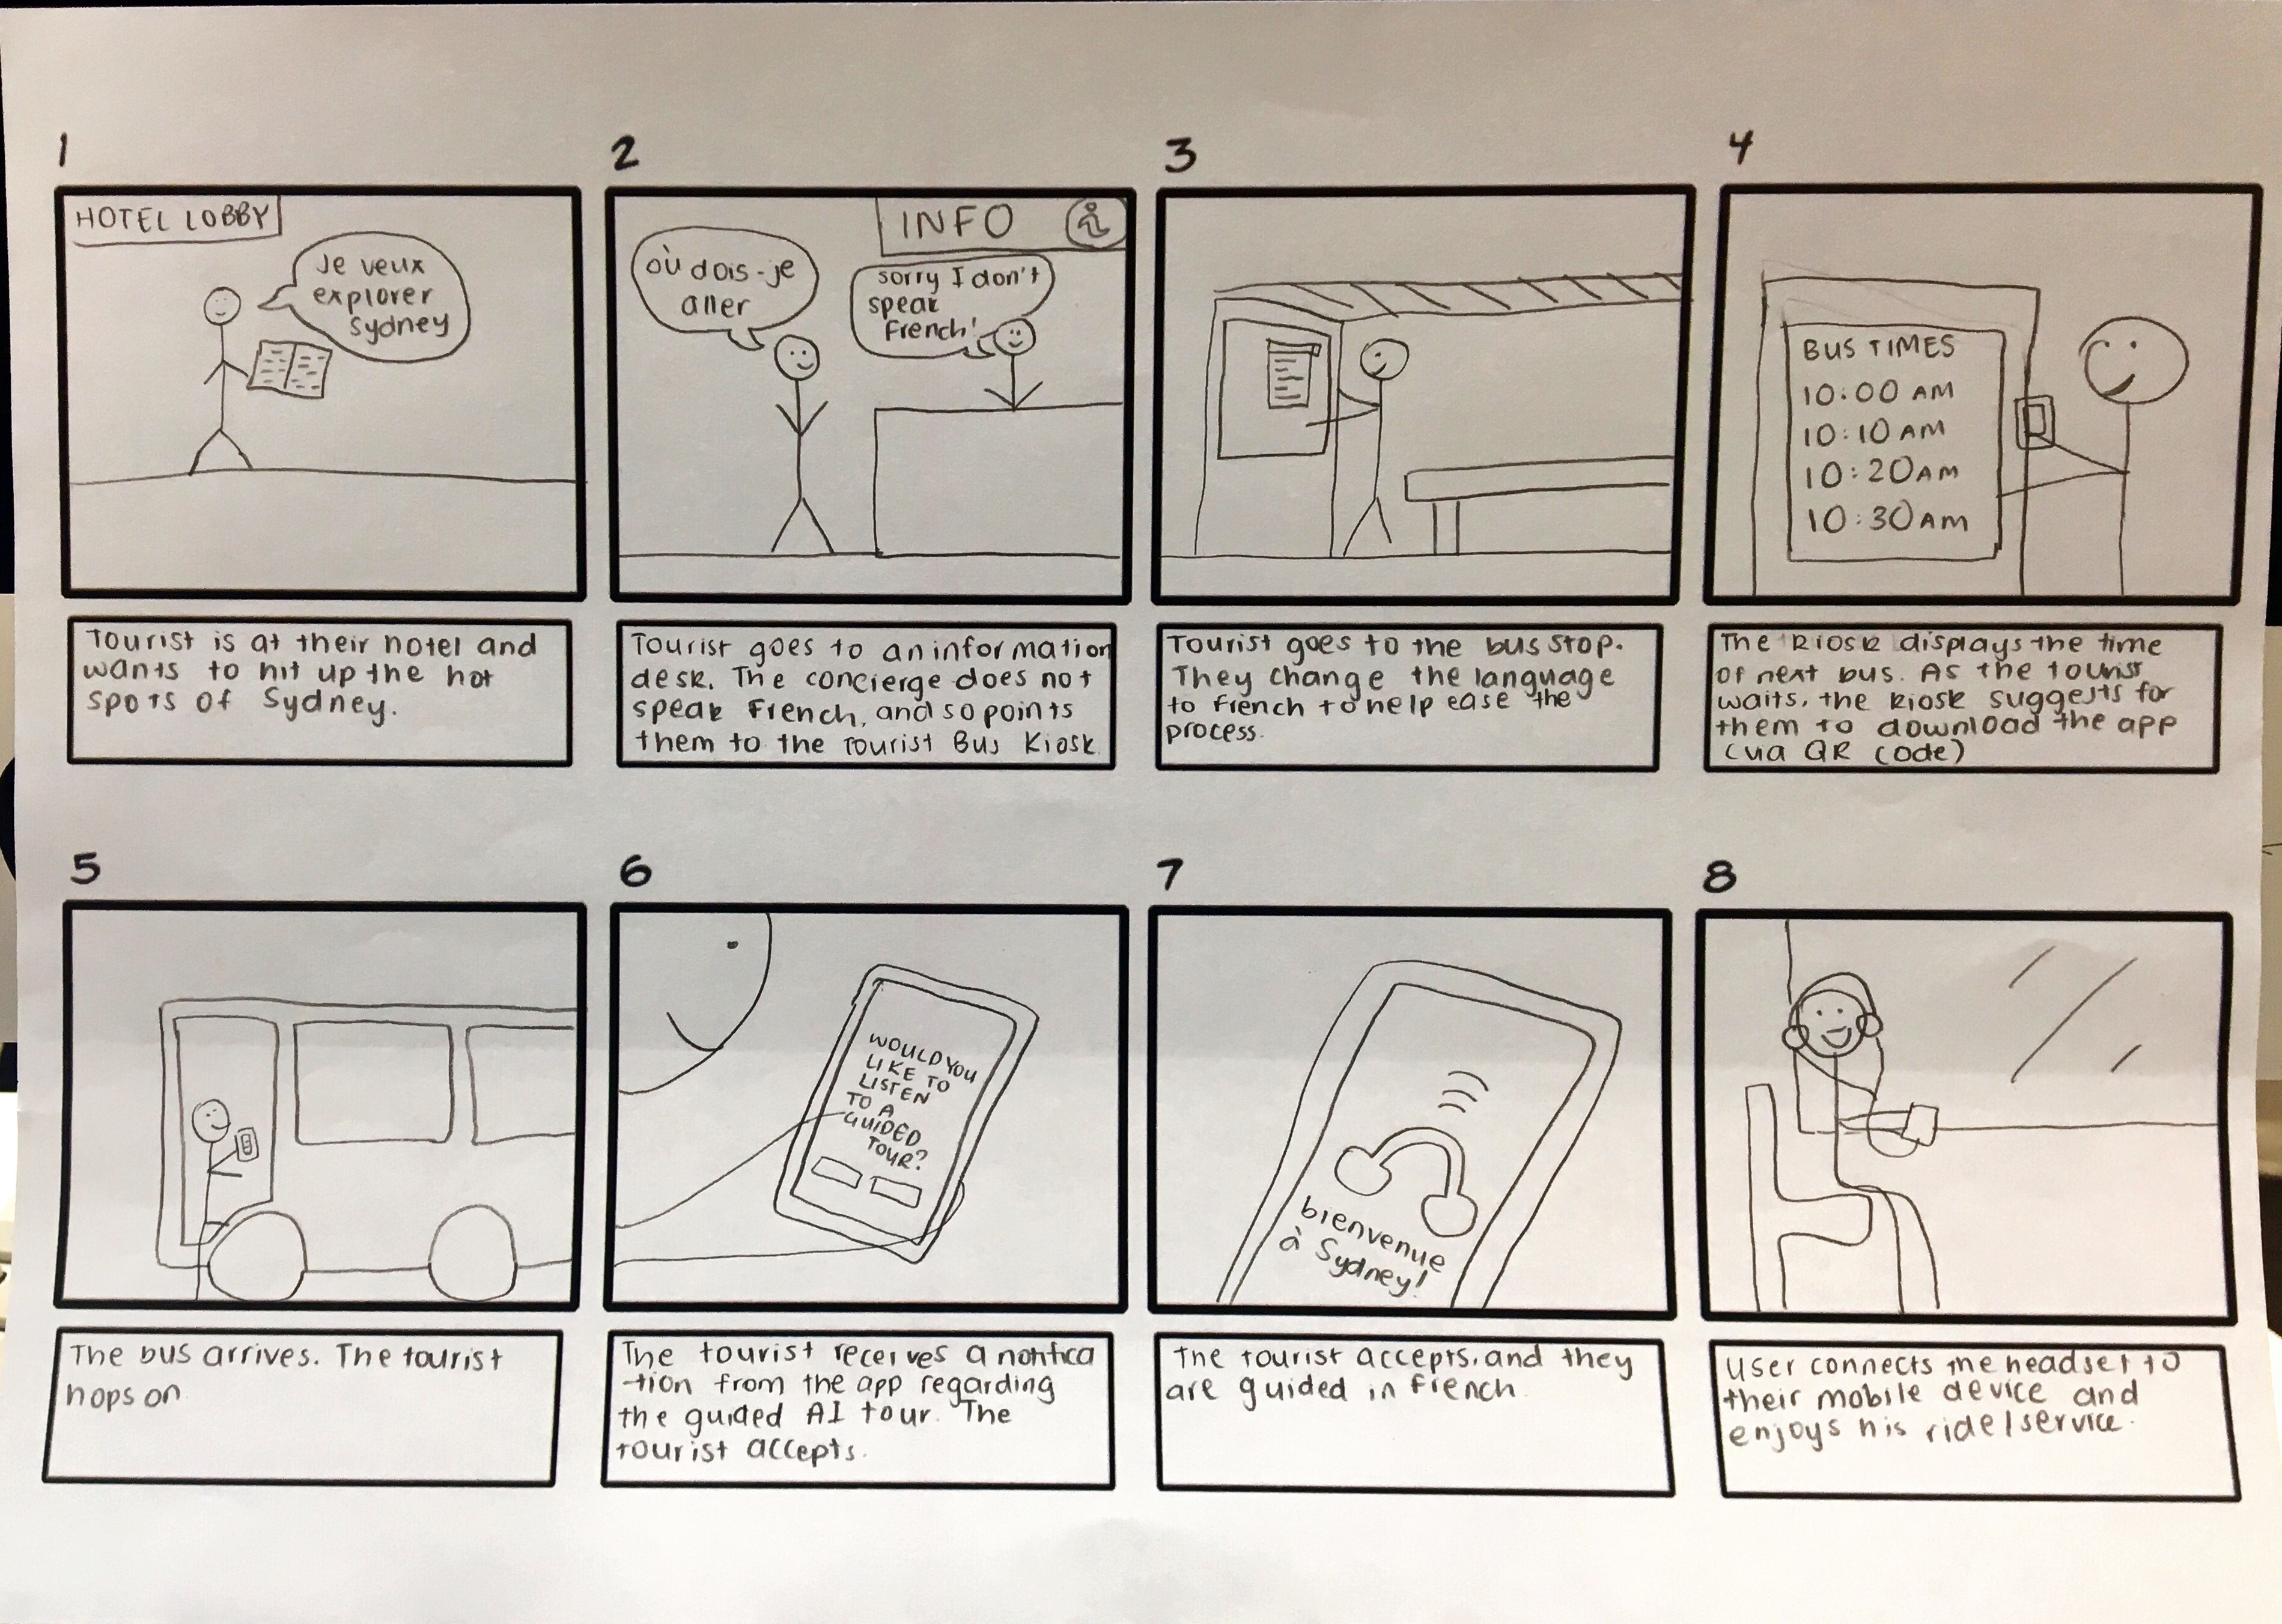 1
HOTEL LOBBY
Je veux
explorer
Sydney
Tourist is at their hotel and
wants to hit up the hot
spots of Sydney.
2
INFO i
où dois-je
aller
sorry I don't
speak
French!
Tourist goes to an information
desk. The concierge does not
speak French, and so points
them to the Tourist Bus Kiosk
3
Tourist goes to the bus stop.
They change the language
to French to help ease the
process.
4
BUS TIMES
10:00 AM
10:10 AM
10:20 AM
10:30 AM
The kiosk displays the time
of next bus. As the tourist
waits, the kiosk suggests for
them to download the app
(via QR code)
5
The bus arrives. The tourist
hops on
6
WOULD YOU
LIKE TO
LISTEN
TO A
GUIDED
TOUR?
The tourist receives a notifica
-tion from the app regarding
the guided AI tour. The
tourist accepts.
7
bienvenue
à Sydney!
The tourist accepts, and they
are guided in French
8
User connects the headset to
their mobile device and
enjoys his ride/service.